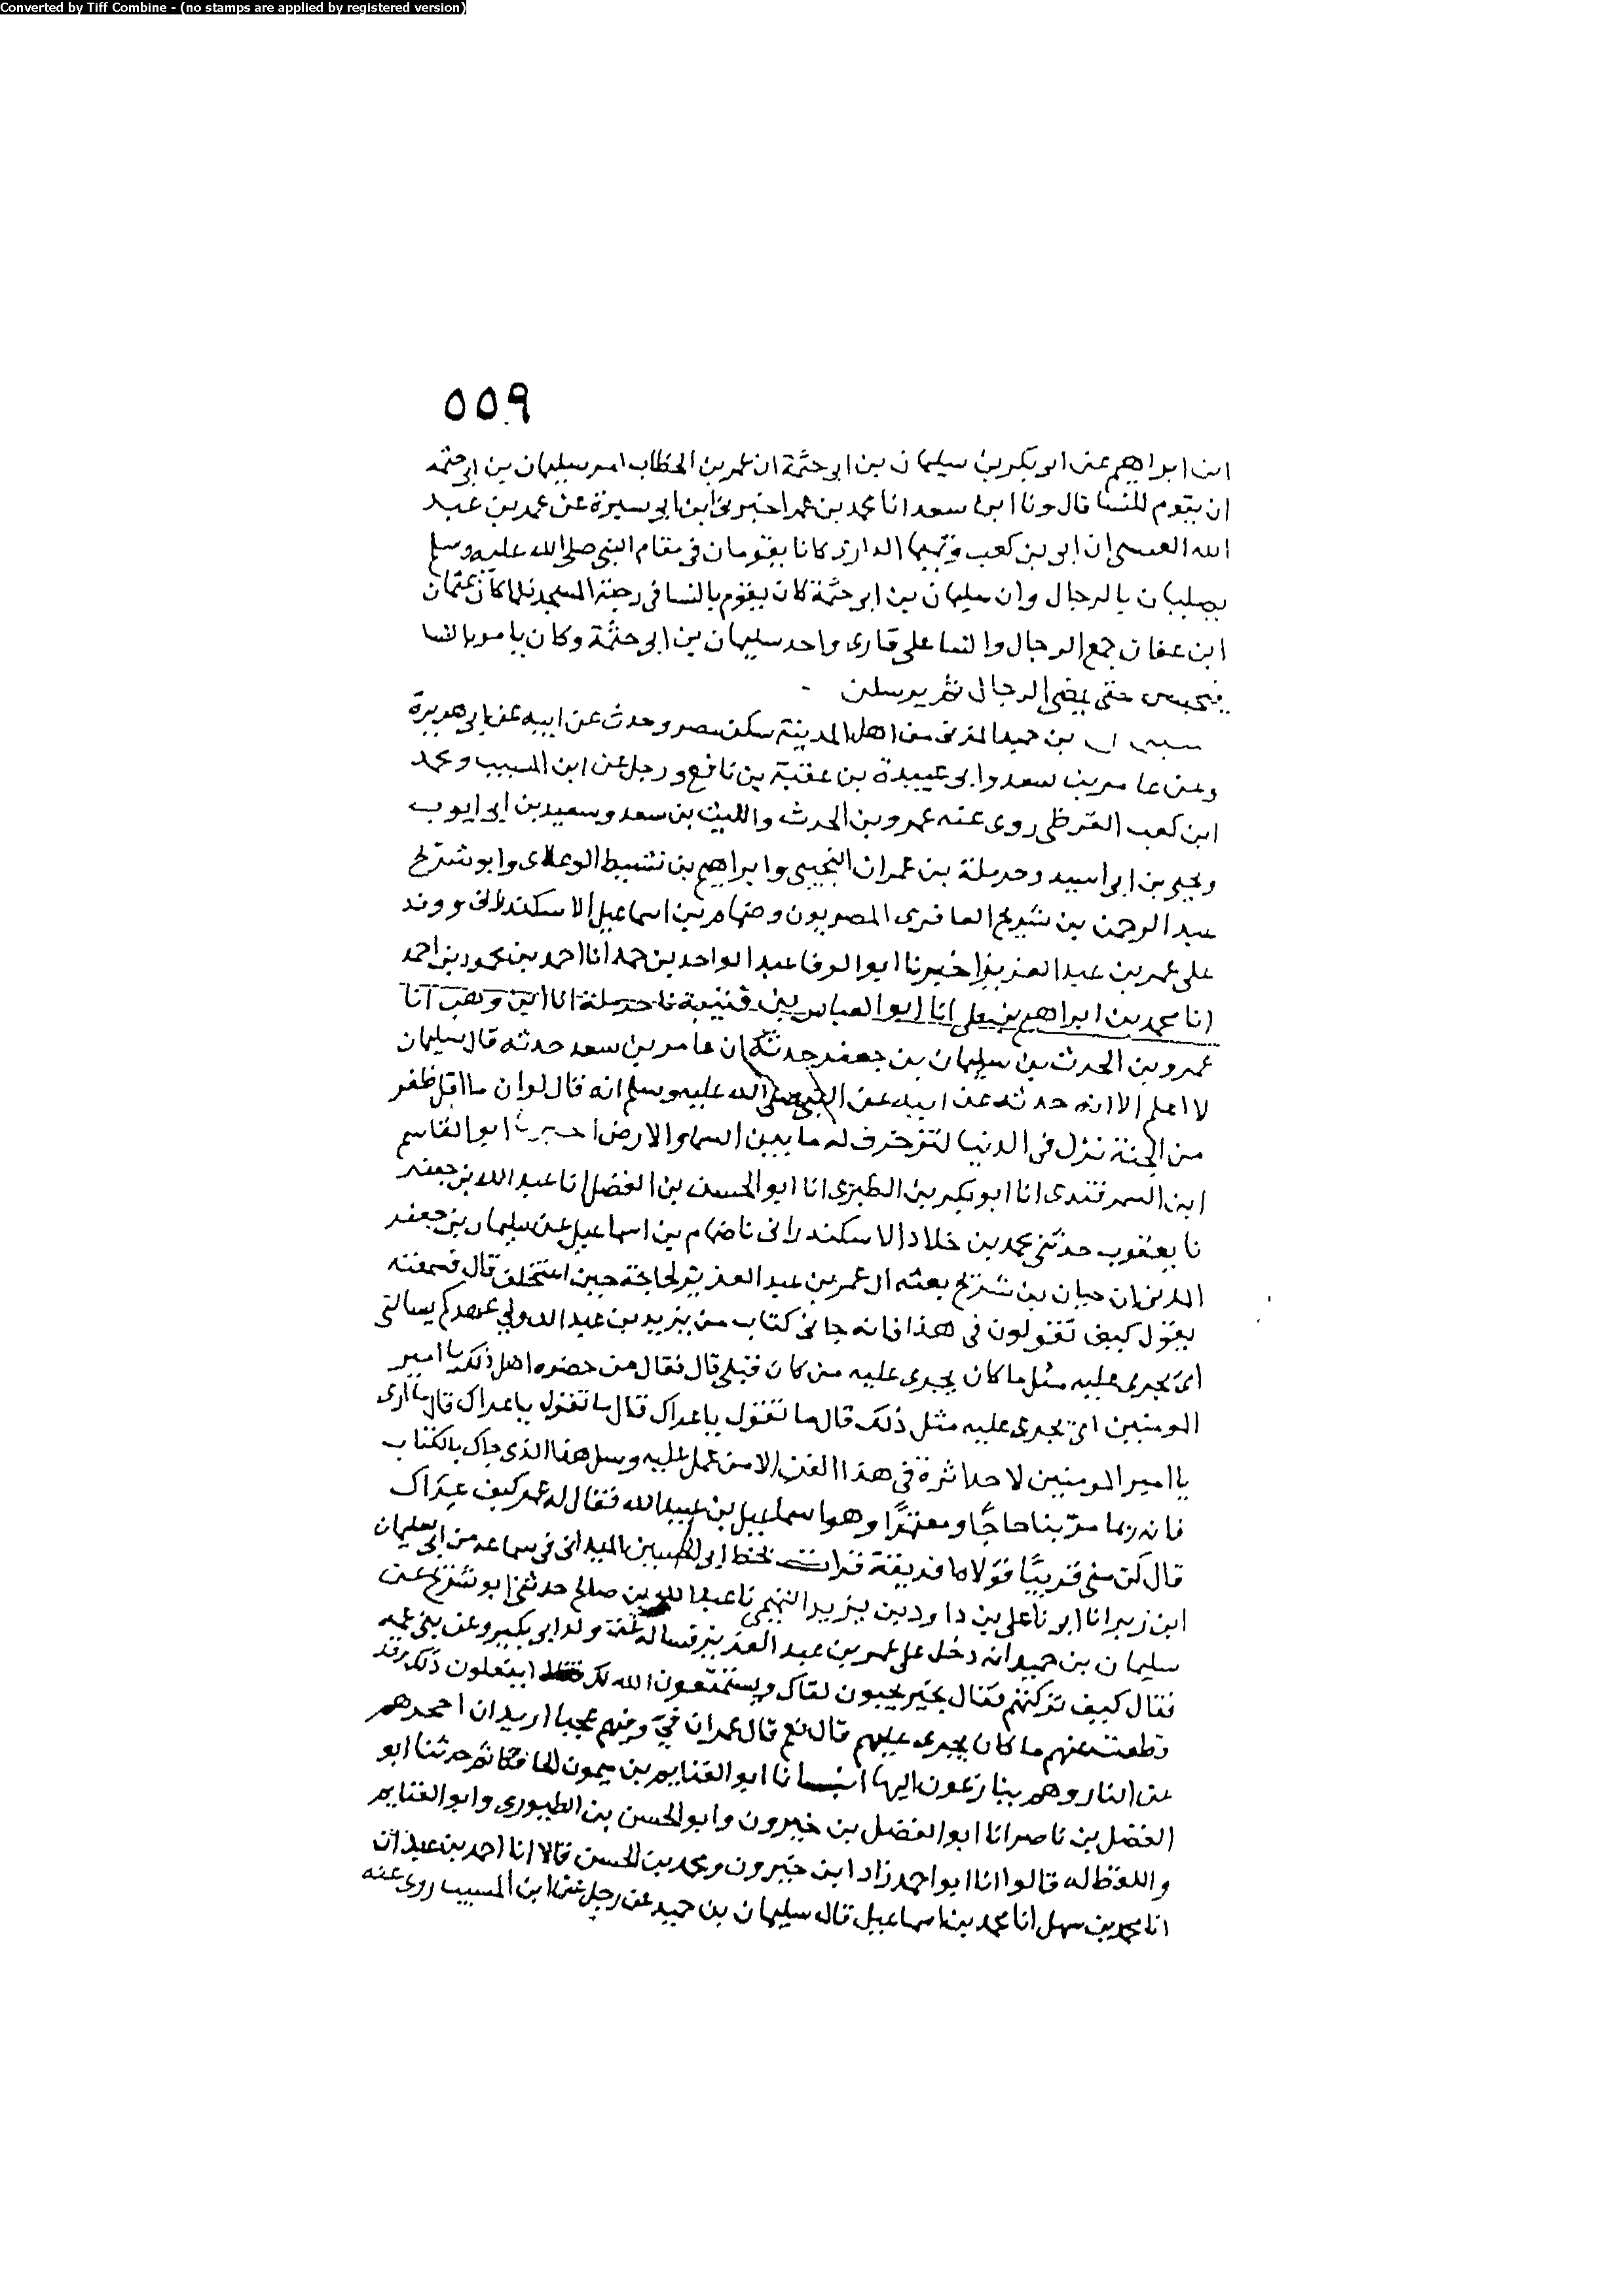 Converted by Tiff Combine - (no stamps are applied by registered version)
٥٥٩
ابن ابراهيم عن ابى بكر بن سليمان بن ابى حثمة ان عمر بن الخطاب امر سليمان بن ابى حثمة
ان يقوم للنسا قال ونا ابن سعد انا محمد بن عمر اخبرنى ابن ابى سبرة عن عمر بن عبد
الله العنسى ان ابى بن كعب وتميما الدارى كانا يقومان فى مقام النبى صلى الله عليه وسلم
يصليان بالرجال وان سليمان بن ابى حثمة كان يقوم بالنسا فى رحبة المسجد فلما كان عثمان
ابن عفان جمع الرجال والنسا على قارى واحد سليمان بن ابى حثمة وكان يامر بالنسا
فيحبس حتى يمضى الرجال ثم يرسلن
بن حميد المزنى من اهل المدينة سكن مصر وحدث عن ابيه عن ابى هريرة
وعن عامر بن سعد وابى عبيدة بن عقبة بن نافع ورجل عن ابن المسيب ومحمد
ابن كعب القرظى روى عنه عمرو بن الحرث والليث بن سعد وسعيد بن ابى ايوب
ويحيى بن ابى اسيد وحرملة بن عمران التجيبى وابراهيم بن نشيط الوعلانى وابو شريح
عبد الرحمن بن شريح المعافرى المصريون وضمام بن اسماعيل الاسكندرانى ووفد
على عمر بن عبد العزيز اخبرنا ابو الوفا عبد الواحد بن حمد انا احمد بن محمود بن احمد
انا محمد بن ابراهيم بن على انا ابو العباس بن قتيبة نا حرملة انا ابن وهب انا
عمرو بن الحرث بن سليمان بن جعفر حدثه ان عامر بن سعد حدثه قال سليمان
لا اعلم الا انه حدثه عن ابيه عن النبى صلى الله عليه وسلم انه قال لو ان ما اقل ظفر
من الجنة نزل فى الدنيا لتزخرف له ما بين السما والارض اخبرنا ابو القاسم
ابن السمرقندى انا ابو بكر بن الطبرى انا ابو الحسين بن الفضل انا عبد الله بن جعفر
نا يعقوب حدثنى محمد بن خلاد الاسكندرانى نا ضمام بن اسماعيل عن سليمان بن جعفر
المدنى ان حيان بن شريح بعثه الى عمر بن عبد العزيز لحاجة حين استخلف قال فسمعته
يقول كيف تقولون فى هذا فانه جانى كتاب من يزيد بن عبد الله ولي عهدكم يسالنى
اى يجرى عليه مثل ما كان يجرى عليه من كان قبلى قال فقال من حضره اهل ذلك يا امير
المومنين اى يجرى عليه مثل ذلك قال ما تقول يا عراك قال ما تقول يا عراك قال ما ارى
يا امير المومنين لاحد اثرة فى هذا الفى الا من عمل عليه وسل هذا الذى جاك بالكتاب
فانه ربما مر بنا حاجًا ومعتمرًا وهو اسماعيل بن عبيد الله فقال له عمر كيف عراك
قال كن منى قريبًا قرات بخط ابى الحسين الميدانى فى سماعه من ابى سليمان
ابن زبر انا ابى نا على بن داود بن يزيد التميمى نا عبد الله بن صالح حدثنى ابو شريح عن
سليمان بن حميد انه دخل على عمر بن عبد العزيز فساله عنه ولد ابى بكير وعن بنى عمه
فقال كيف تركتهم فقال بخير يحبون لقاك ويستمتعون الله لك فقال ايفعلون ذلك وقد
قطعت عنهم ما كان يجرى عليهم قال نعم قال عمر ان فيّ وفيهم عجبا اريد ان احجزهم
عن النار وهم ينازعون اليها انبانا ابو الغنايم بن ميمون الحافظ ثم حدثنا ابو
الفضل بن ناصر انا ابو الفضل بن خيرون وابو الحسن بن الطيورى وابو الغنايم
واللفظ له قالوا انا ابو احمد زاد ابن خيرون ومحمد بن الحسن قالا انا احمد بن عبدان
انا محمد بن سهل انا محمد بن اسماعيل قال سليمان بن حميد عن رجل عن ابن المسيب روى عنه